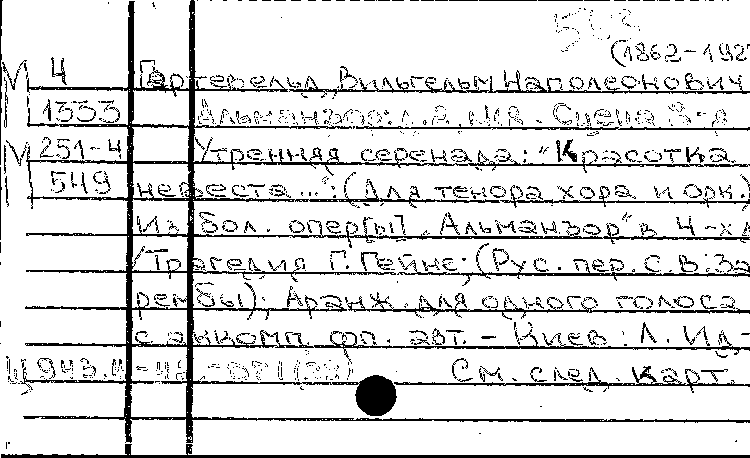 563
(1862-192
М 4 Гартевельд, Вильгельм Наполеонович
1333 Альманзор: д. 2, №8. Сцена 3-я
М 251-4 Утренняя серенада: "Красотка
549 невеста...": (Для тенора, хора и орк.)
Из бол. опер[ы] "Альманзор" в 4-х д
/Трагедия Г. Гейне; (Рус. пер. С. В. За
рембы); Аранж. для одного голоса
с аккомп. фп. авт. - Киев: Л. Ид-
Ц943.4-4
См. след. карт.